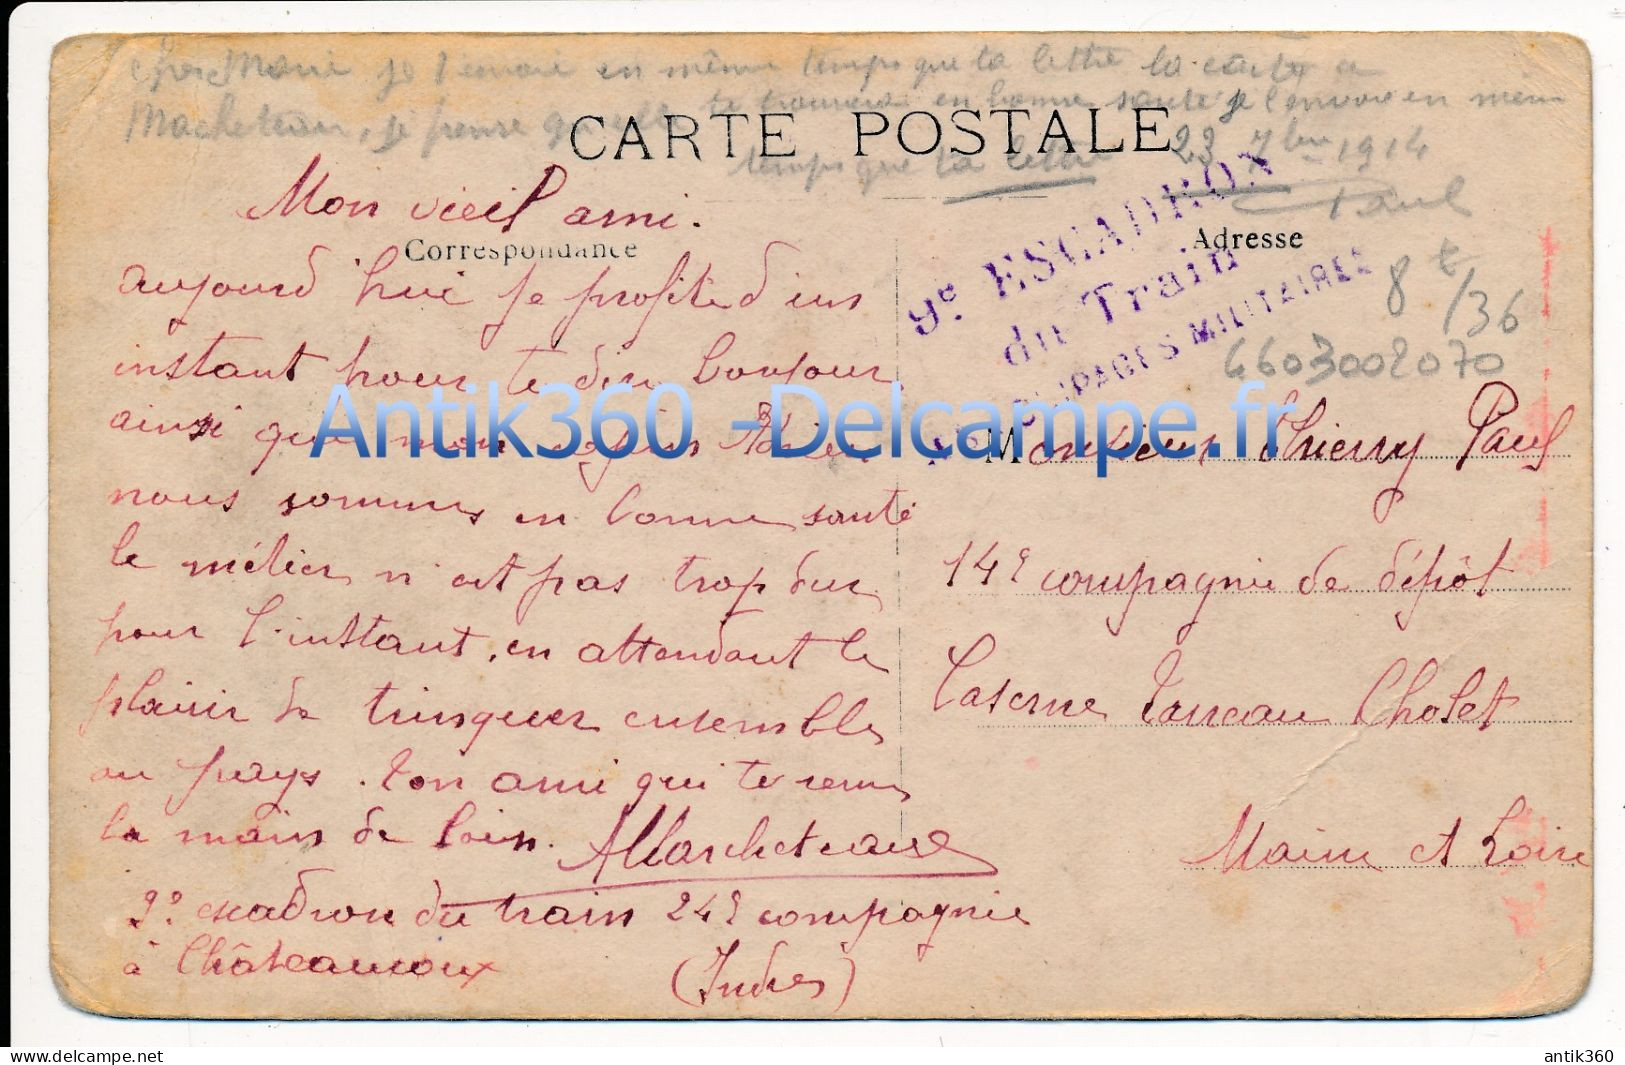 cher Marie je t'envoie en même temps que ta lettre la carte a
Macheteau, je pense qu'elle te trouvera en bonne santé je l'envoie en meme
temps que ta lettre 23 7bre 1914
Paul
CARTE POSTALE
Correspondance
Adresse
Mon vieil ami.
aujourd'hui je profite d'un
instant pour te dire bonjour
ainsi que mon
nous sommes en bonne santé
le métier n'est pas trop dur
pour l'instant, en attendant le
plaisir de trinquer ensemble
au pays. ton ami qui te serre
la main de loin. AMarcheteau
9e escadron du train 24e compagnie
à Châteauroux (Indre)
9e ESCADRON
du Train
des ÉQUIPAGES MILITAIRES
8t/36
6603002070
Monsieur Thierry Paul
14e compagnie de dépôt
Caserne Tarreau Cholet
Maine et Loire
Antik360 -Delcampe.fr
www.delcampe.net
antik360